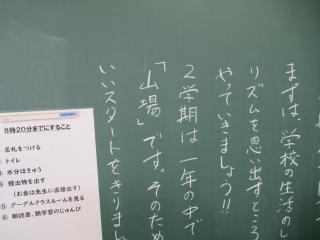 まずは、学校の生活のし
リズムを思い出すところ
やっていきましょう!!
2学期は一年の中で
「山場」です。そのため
いいスタートをきりまし
8時20分までにすること
名札をつける
トイレ
③ 水分ほきゅう
④ 提出物を出す
(お金は先生に直接出す)
⑤ グーグルクラスルームを見る
⑥ 朗読書、朝学習のじゅんび